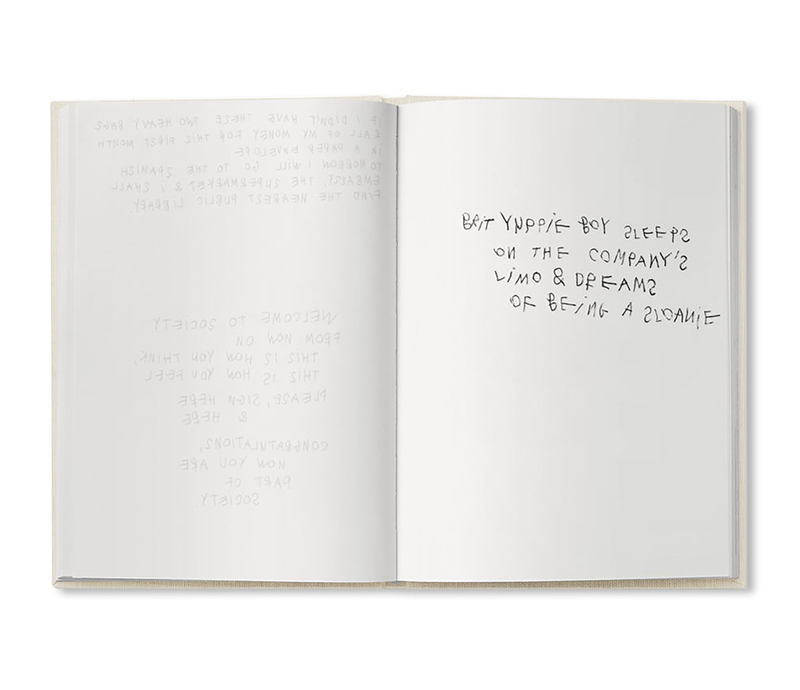 IF I DIDN'T HAVE THESE TWO HEAVY BAGS
& ALL OF MY MONEY FOR THIS FIRST MONTH
IN A PAPER ENVELOPE
TOMORROW I WILL GO TO THE SPANISH
EMBASSY, THE SUPERMARKET & I SHALL
FIND THE NEAREST PUBLIC LIBRARY
WELCOME TO SOCIETY
FROM NOW ON
THIS IS HOW YOU THINK,
THIS IS HOW YOU FEEL
PLEASE, SIGN HERE
& HERE
CONGRATULATIONS,
NOW YOU ARE
PART OF
SOCIETY
BRIT YUPPIE BOY SLEEPS
ON THE COMPANY'S
LIMO & DREAMS
OF BEING A SLOANIE